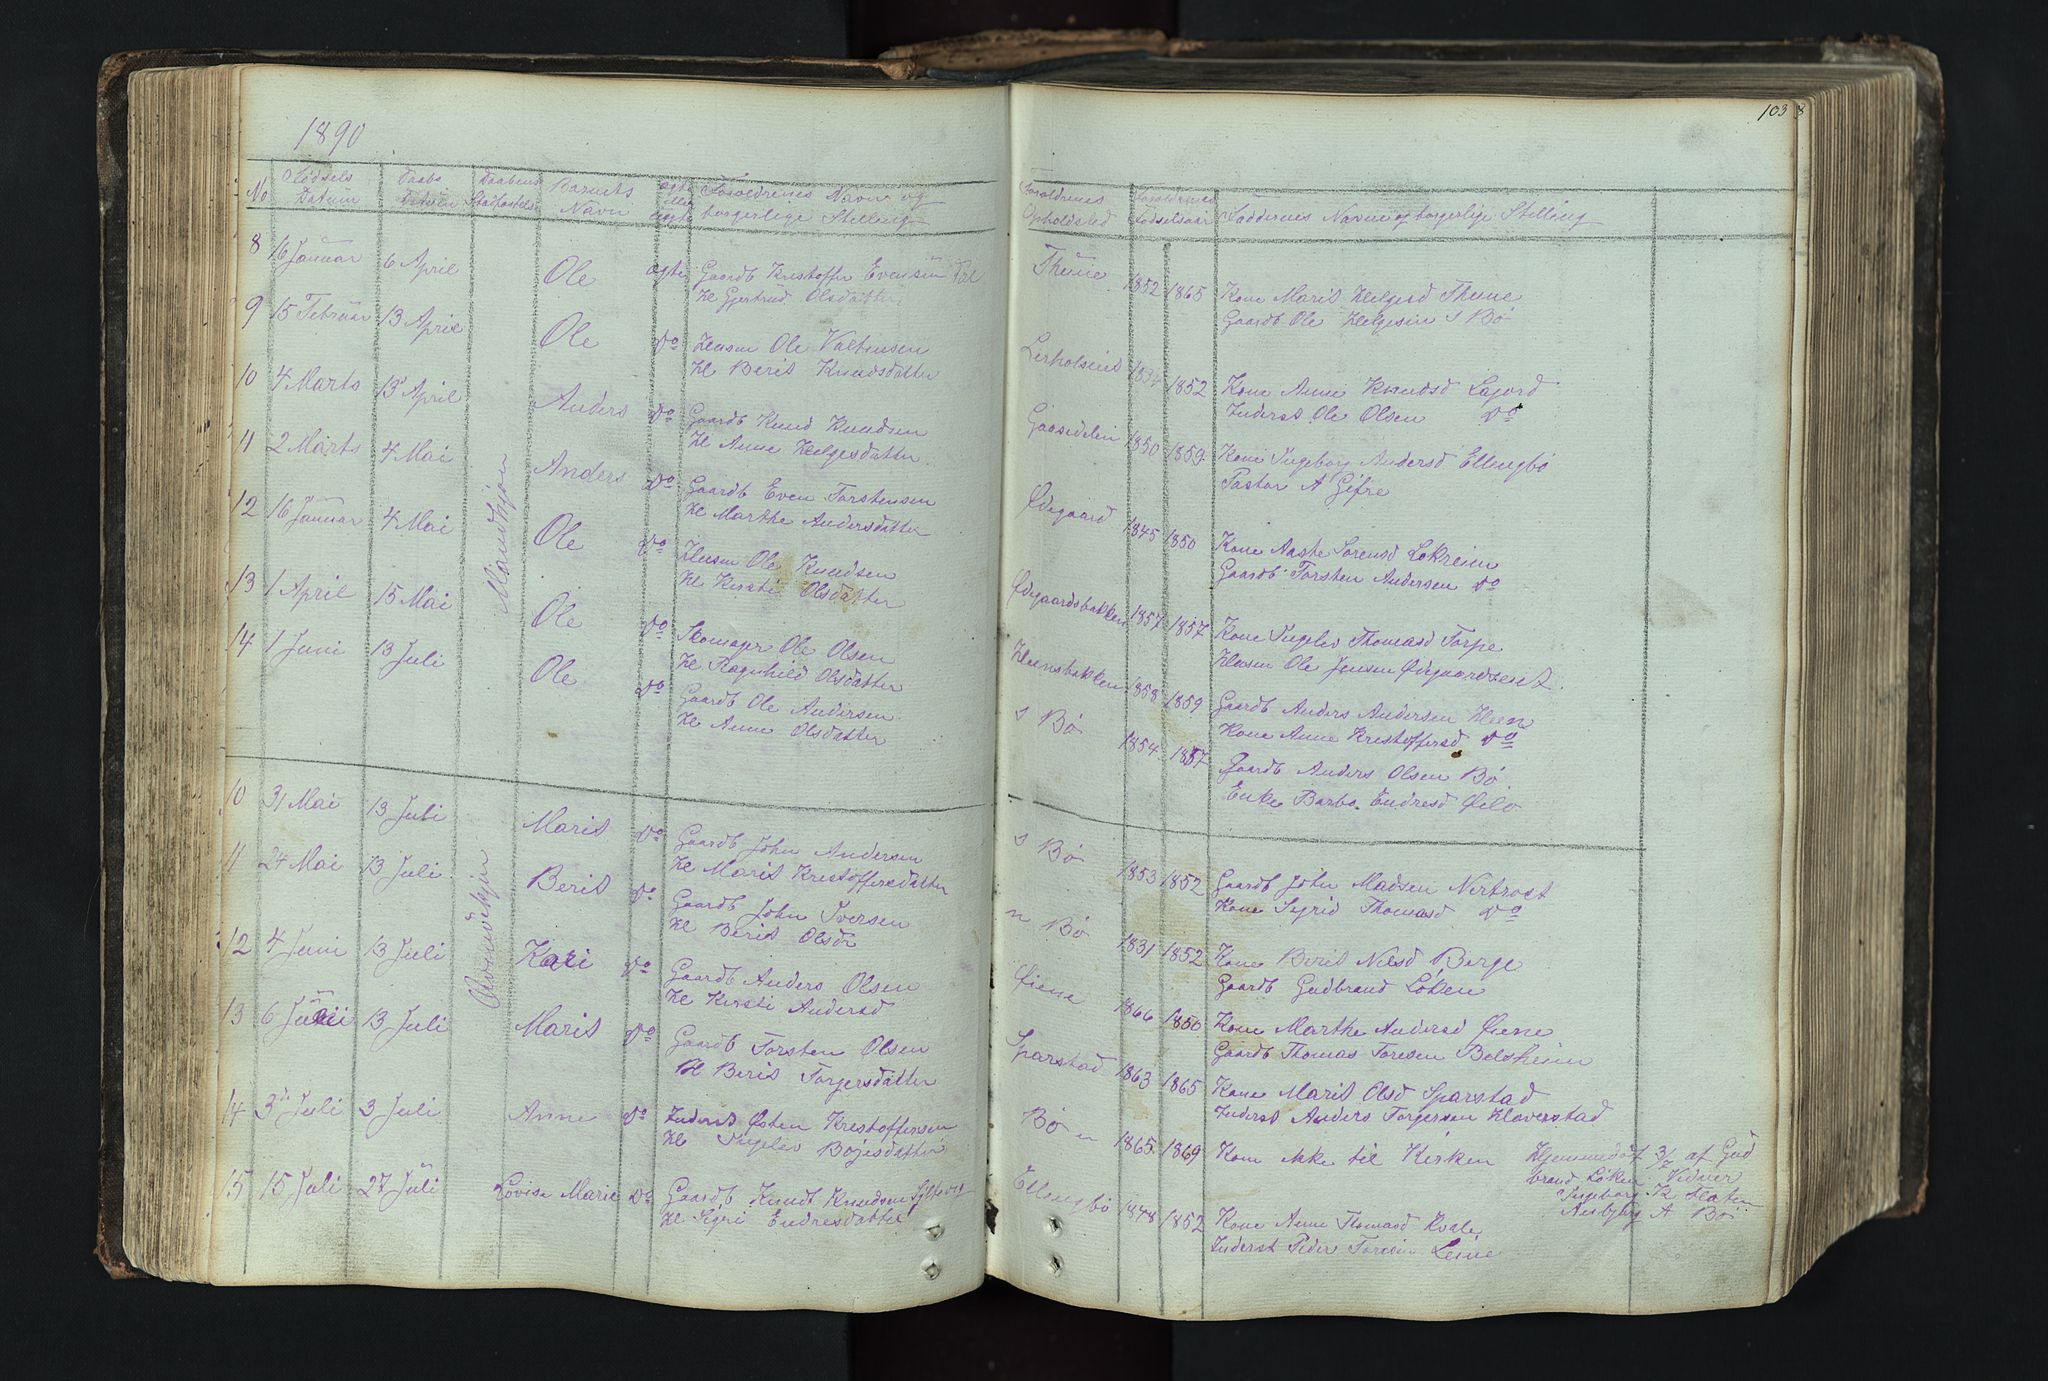 1890
No
Fødsels
Datum
Daabs
Datum
Daabens
Stadfæstels
Barnets
Navn
ægte
ell
uægte
Forældrenes Navn og
borgerlige Stilling
Mandkjøn
8 16 Januar 6 April Ole ægte Gaardb Kristoffer Evensen
Hl Gjertrud Olsdatter
9 15 Februar 13 April Ole Do Husm Ole Valtinsen
Hl Berit Knudsdatter
10 4 Marts 13 April Anders Do Gaardb Knud Knudsen
Hl Anne Helgesdatter
11 2 Marts 4 Mai Anders Do Gaardb Even Torstensen
Hl Marthe Andersdatter
12 16 Januar 4 Mai Ole Do Husm Ole Knudsen
Hl Kirsti Olsdatter
13 1 April 15 Mai Ole Do Skomager Ole Olsen
Hl Ragnhild Olsdatter
14 1 Juni 13 Juli Ole Do Gaardb Ole Andersen
Hl Anne Olsdatter
Qvindekjøn
10 31 Mai 13 Juli Marit Do Gaardb John Andersen
Hl Marit Kristoffersdatter
11 24 Mai 13 Juli Berit Do Gaardb John Iversen
Hl Berit Olsdr
12 4 Juni 13 Juli Kari Do Gaardb Anders Olsen
Hl Kirsti Andersd
13 6 Juni 13 Juli Marit Do Gaardb Torsten Olsen
Hl Berit Torgersdatter
14 3 Juli 3 Juli Anne Do Inderst Østen Kristoffersen
Hl Ingelev Bojesdatter
15 15 Juli 27 Juli Lovise Marie Do Gaardb Knudt Knudsen
Hl Sigri Endresdatter
103
Forældrenes
Opholdsted
Forældrenes
Fødselsaar
Faddernes Navne og borgerlige Stilling
Thune 1852 1865 Kone Marit Helgesd Thune
Gaardb Ole Helgesen s Bø
1834 1852 Kone Anne Knudsd
Inderst Ole Olsen Do
1850 1859 Kone Ingeborg Andersd Ellingbø
Pastor A Gifre
Ødegaard 1845 1850 Kone Aaste Sorensd Løkreim
Gaardb Torsten Andersen Do
Ødegaardsbakken 1857 1857 Kone Ingelev Thomasd Torpe
Husm Ole Jensen
Heensbakken 1858 1859 Gaardb Anders Andersen Heen
Kone Anne Kristoffersd Do
s Bø 1854 1857 Gaardb Anders Olsen Bø
Enke Barbo Endresd
s Bø 1853 1852 Gaardb John Madsen Nertrost
Kone Sigrid Thomasd Do
n Bø 1831 1852 Kone Berit Nilsd Berge
Gaardb Gudbrand Løken
Øiene 1866 1850 Kone Marthe Andersd Øiene
Gaardb Thomas Toresen Belsheim
Sparstad 1863 1865 Kone Marit Olsd Sparstad
Inderst Anders Torgersen Haverstad
Bø n 1865 1869 Kom ikke til Kirken
Hjemmedøbt 3/7 af Gud
brand Løken Vidner
Ingeborg K
A Bø
Ellingbø 1848 1852 Kone Anne Thomasd Kvale
Inderst Peder Toresen Leine